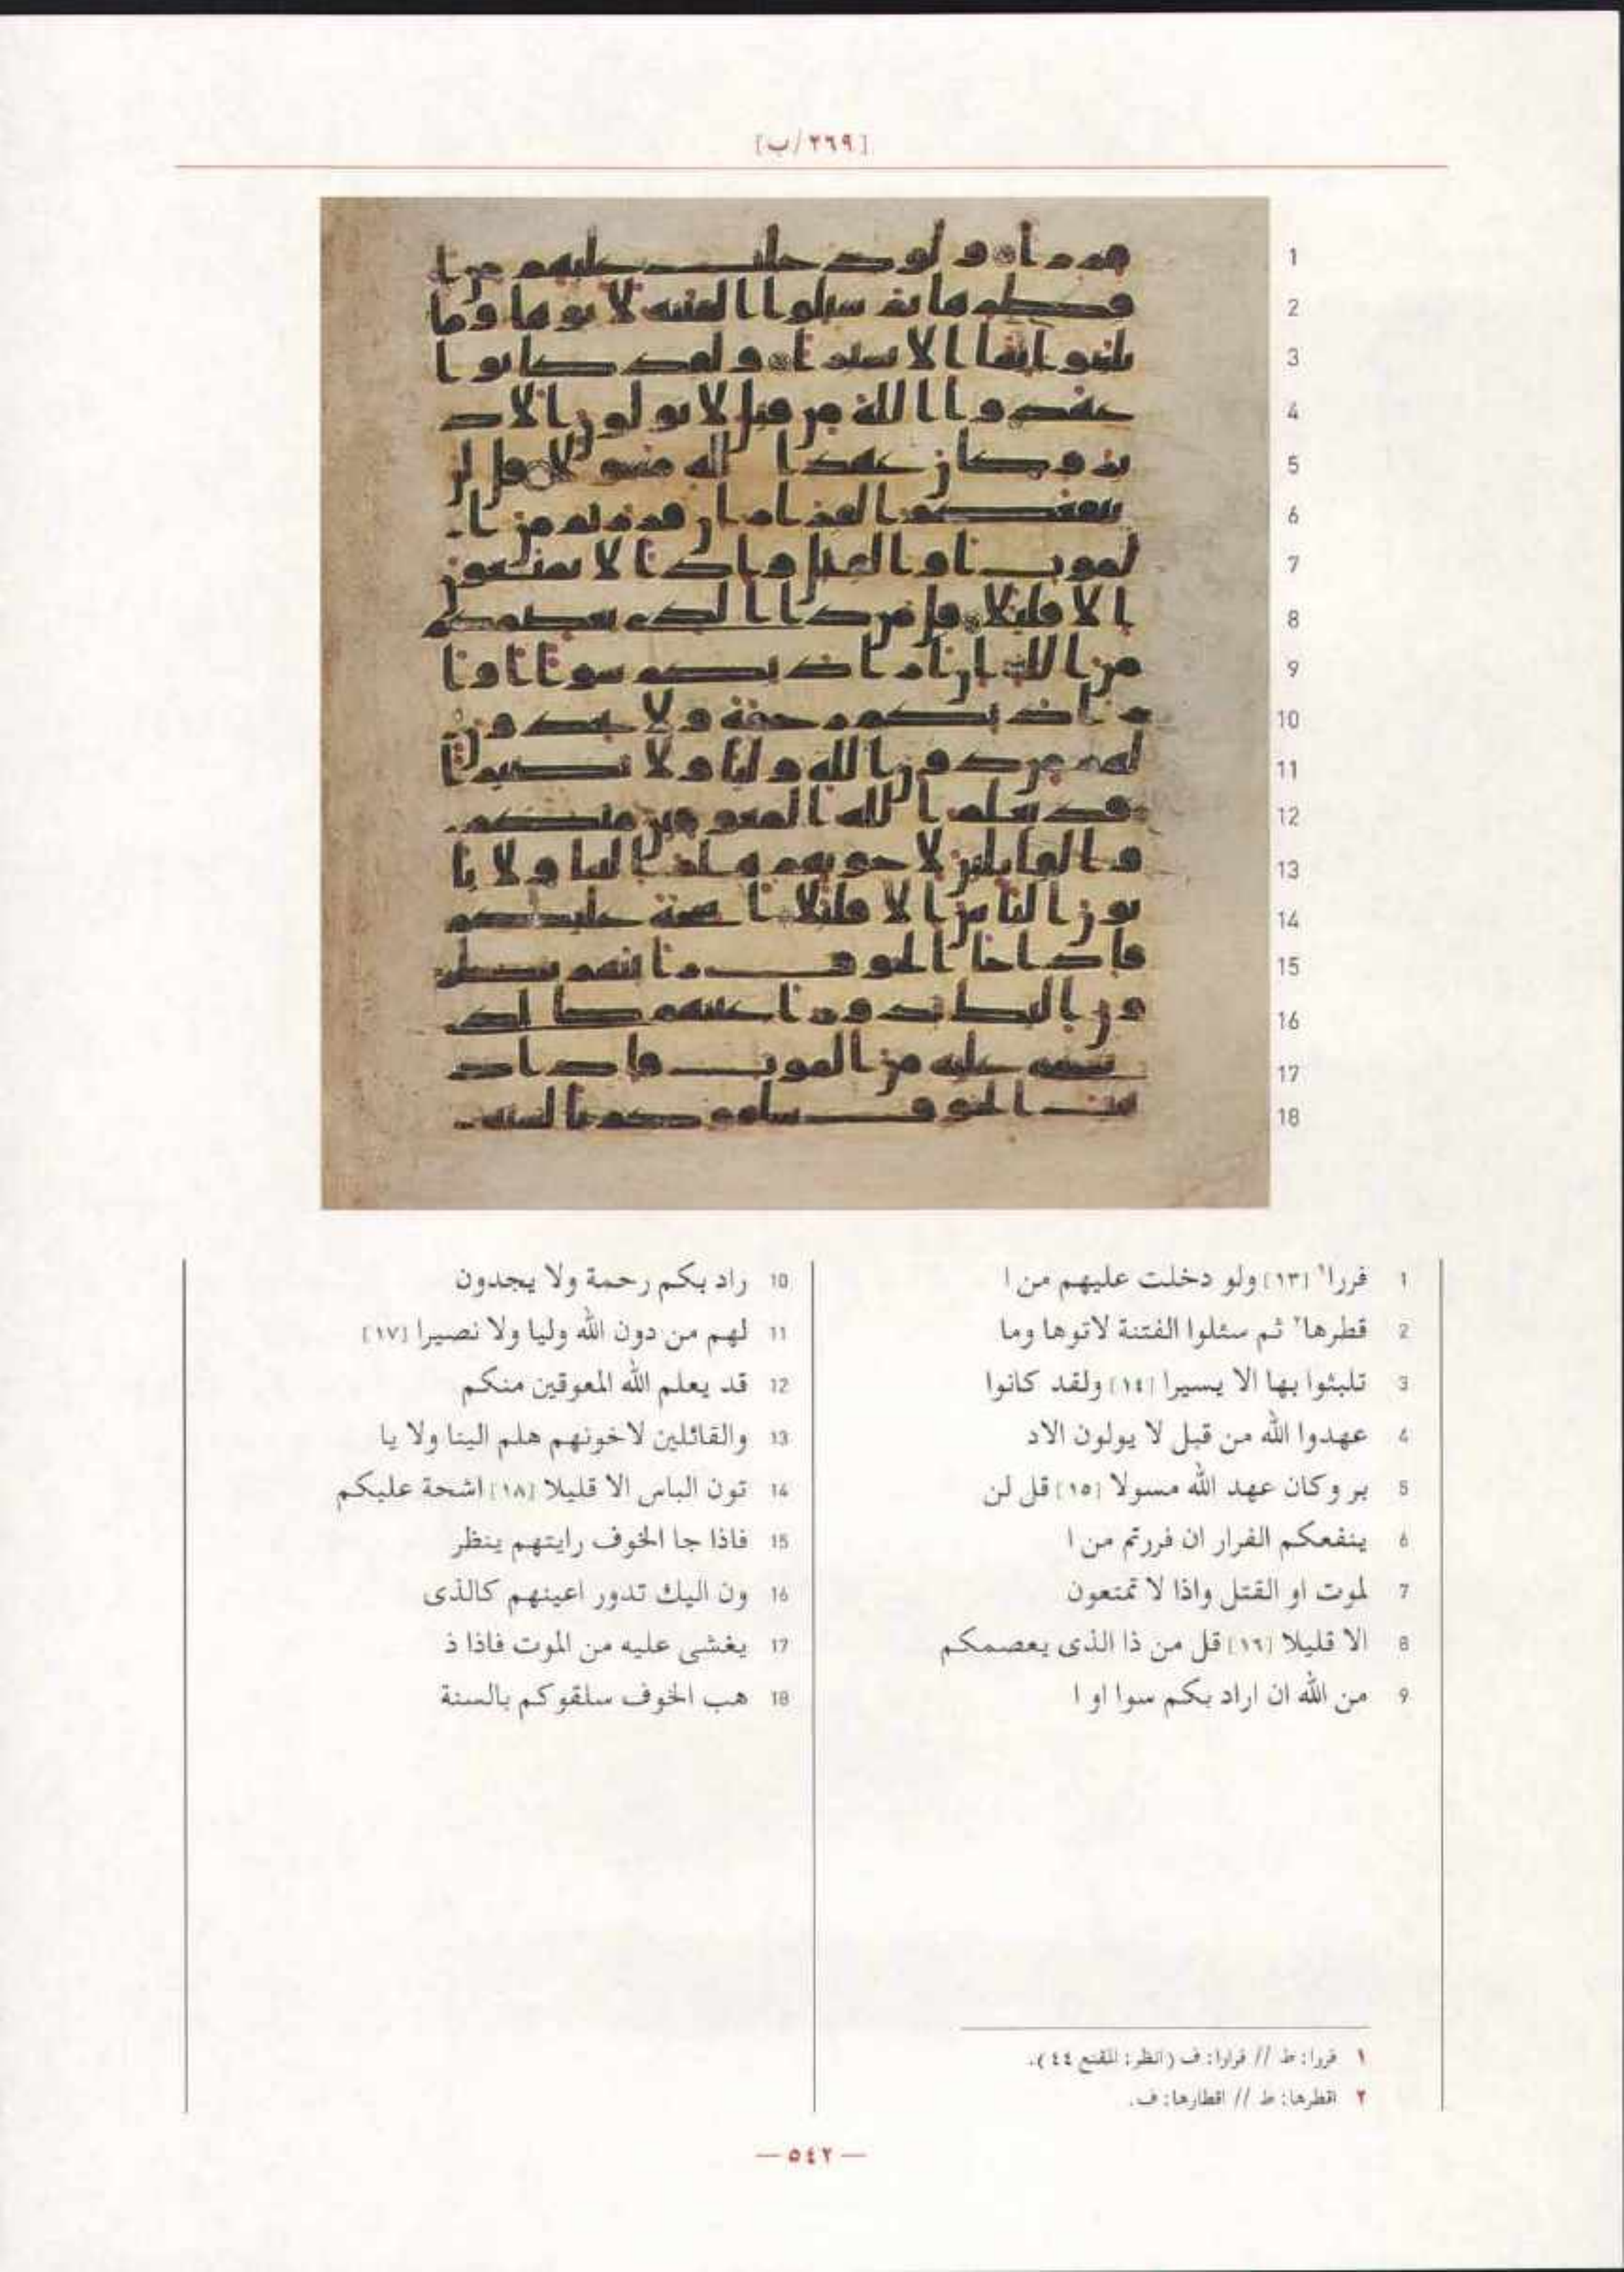 [٢٦٩/ب]
1 فررا١ [١٣] ولو دخلت عليهم من ا
2 قطرها٢ ثم سئلوا الفتنة لاتوها وما
3 تلبثوا بها الا يسيرا [١٤] ولقد كانوا
4 عهدوا الله من قبل لا يولون الاد
5 بر وكان عهد الله مسولا [١٥] قل لن
6 ينفعكم الفرار ان فررتم من ا
7 لموت او القتل واذا لا تمتعون
8 الا قليلا [١٦] قل من ذا الذى يعصمكم
9 من الله ان اراد بكم سوا او ا
10 راد بكم رحمة ولا يجدون
11 لهم من دون الله وليا ولا نصيرا [١٧]
12 قد يعلم الله المعوقين منكم
13 والقائلين لاخونهم هلم الينا ولا يا
14 تون الباس الا قليلا [١٨] اشحة عليكم
15 فاذا جا الخوف رايتهم ينظر
16 ون اليك تدور اعينهم كالذى
17 يغشى عليه من الموت فاذا ذ
18 هب الخوف سلقوكم بالسنة
١ فررا: ط // فرارا: ف (انظر: المقنع ٤٤).
٢ اقطرها: ط // اقطارها: ف.
— ٥٤٢ —